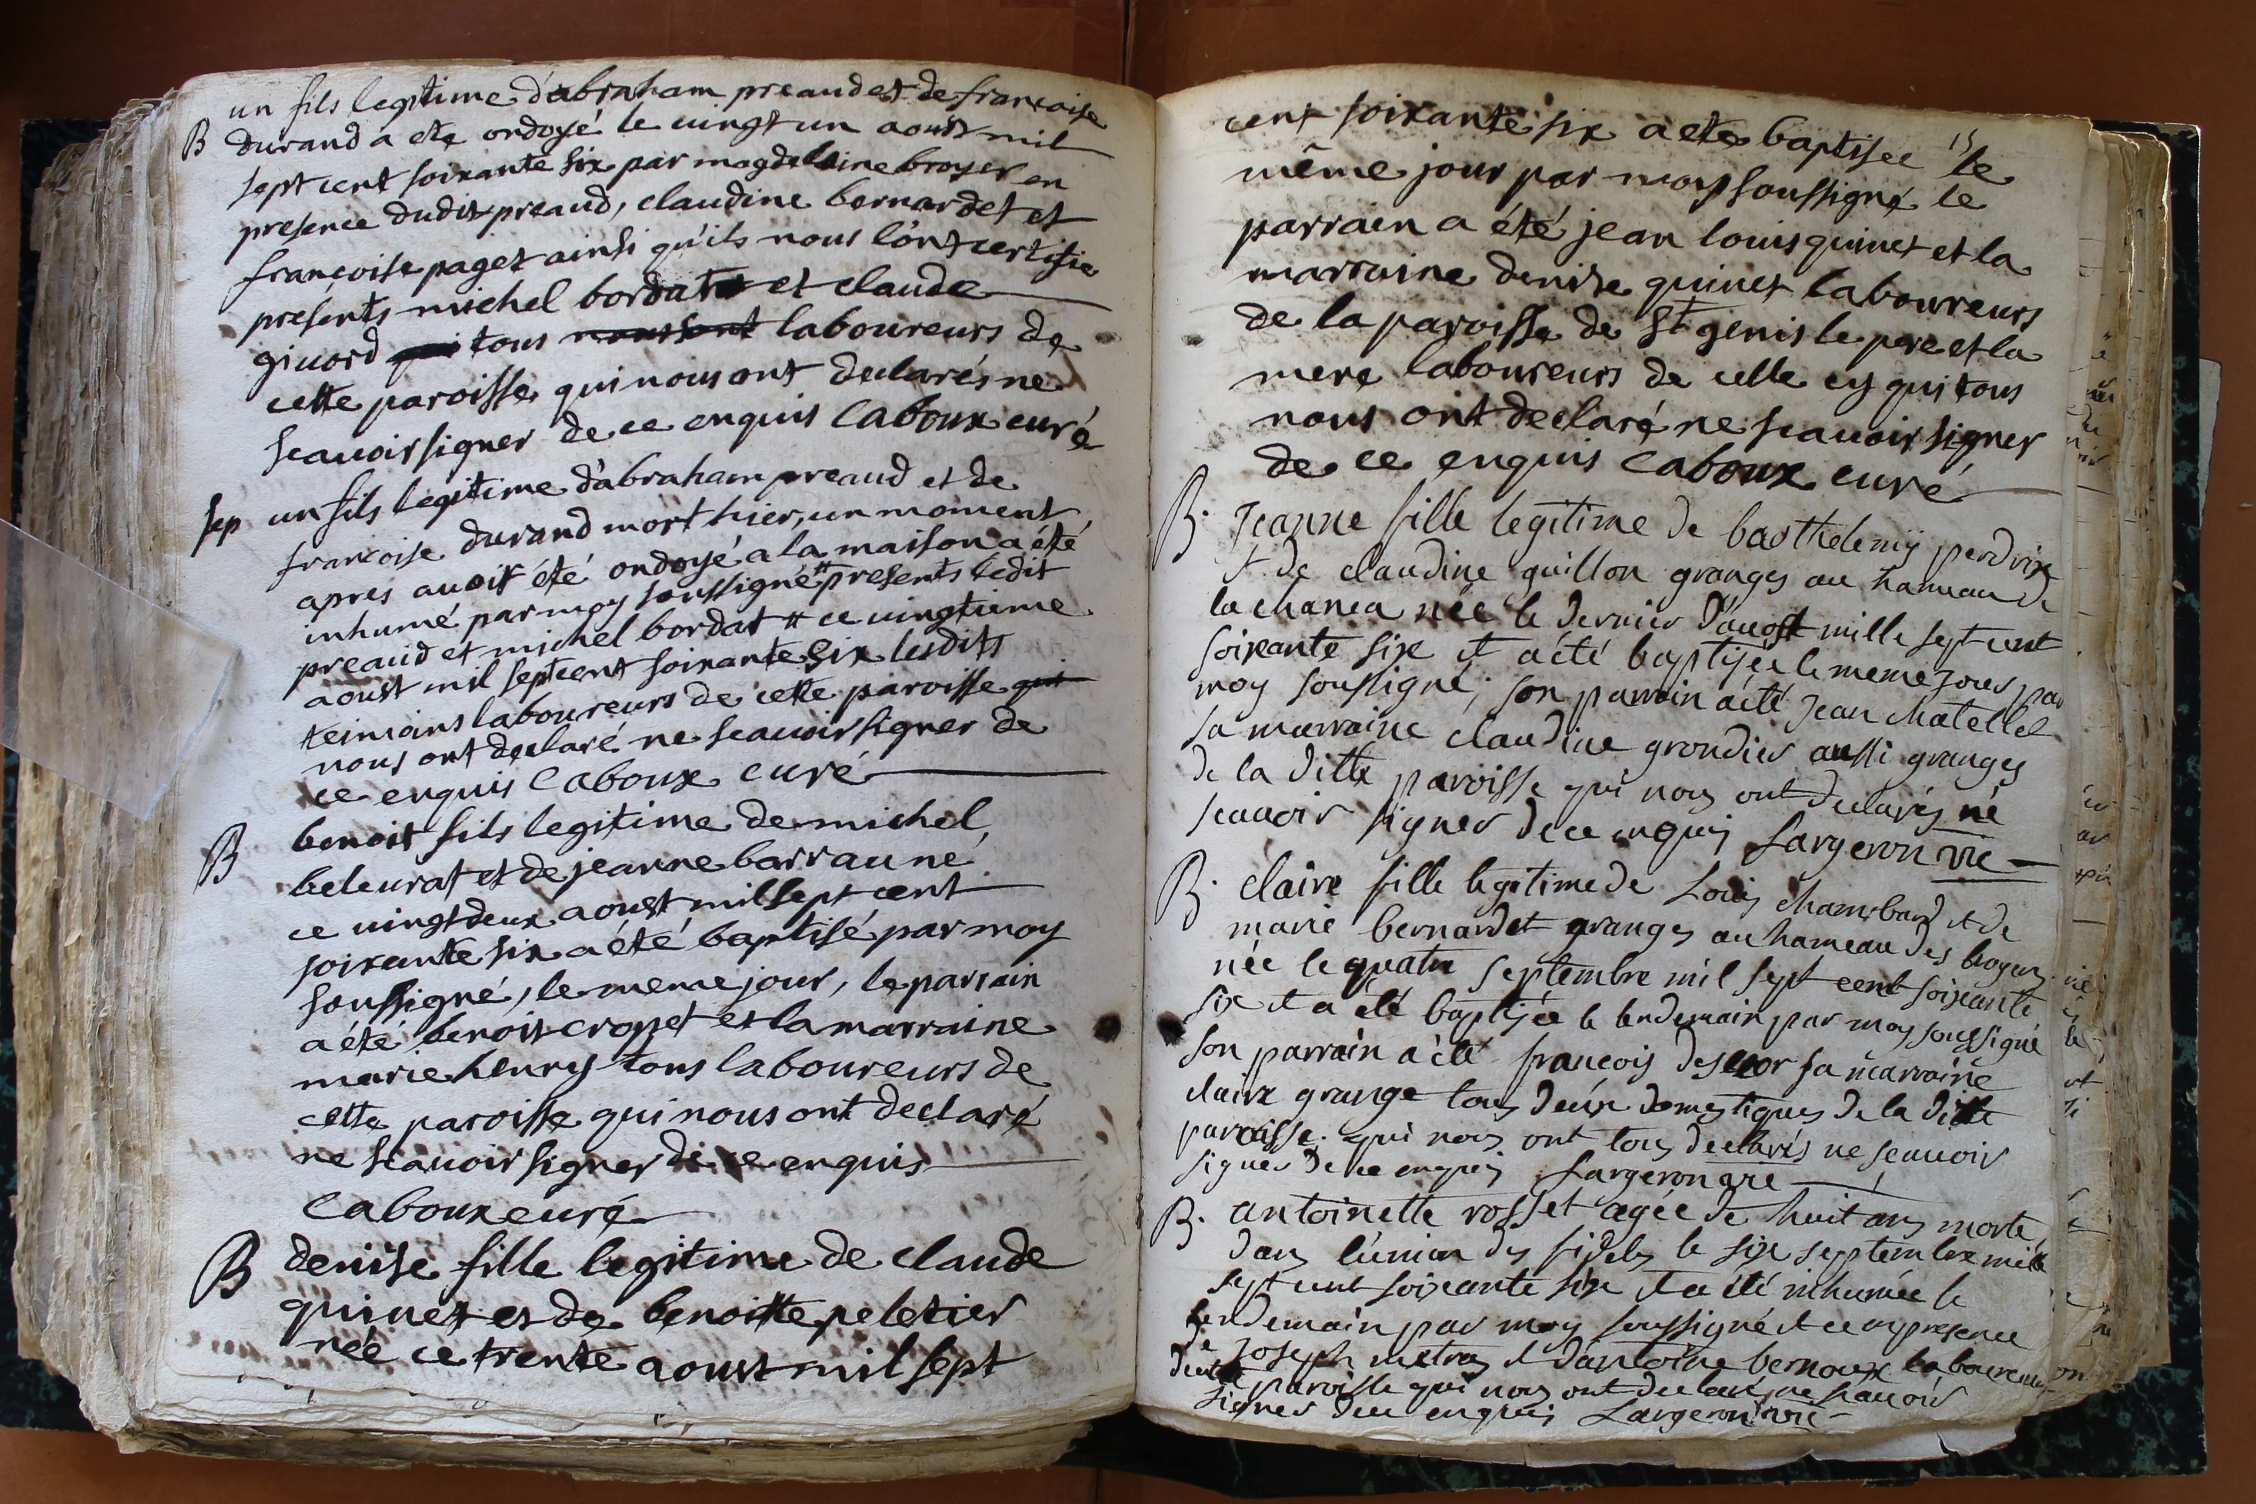 un fils legitime d'abraham preaud et de francoise
B durand a ete ondoyé le vingt un aoust mil
sept cent soixante six par magdelaine broyer en
presence dudit preaud, claudine bernardet et
françoise paget ainsi qu'ils nous l'ont certifie
presents michel bordat et claude
givord tous laboureurs de
cette paroisse qui nous ont declarés ne
scavoir signer de ce enquis Caboux curé
sep un fils legitime d'abraham preaud et de
francoise durand mort hier, un moment
apres avoir été ondoyé a la maison a été
inhumé par moy soussigné # presents ledit
preaud et michel bordat # ce vingtieme
aoust mil sept cent soixante six lesdits
temoins laboureurs de cette paroisse qui
nous ont declaré ne scavoir signer de
ce enquis Caboux curé
B benoit fils legitime de michel
beleurat et de jeanne barrau né
ce vingt deux aoust mil sept cent
soixante six a été baptisé par moy
soussigné, le meme jour, le parrain
a été benoit crozet et la marraine
marie henry tous laboureurs de
cette paroisse qui nous ont declaré
ne scavoir signer de ce enquis
Caboux curé
B denise fille legitime de claude
quinet et de benoitte peletier
née ce trente aoust mil sept
15
cent soixante six a ete baptisee le
même jour par moy soussigné le
parrain a été jean louis quinet et la
marraine denise quinet laboureurs
de la paroisse de St genis le pere et la
mere laboureurs de celle cy qui tous
nous ont declaré ne scavoir signer
de ce enquis Caboux curé
B. Jeanne fille legitime de barthelemÿ perdrix
et de claudine guillon granges au hameau de
la chanea née le dernier d'aoust mille sept cent
soixante six et a été baptisée le meme jour par
moy soussigné; son parrain a été Jean chatellet
sa marraine claudine grondier aussi granges
de la ditte paroisse qui nous ont declarés né
scavoir signer de ce enquis Largeron vic
B. claire fille legitime de Louis chambard et de
marie bernardet granges au hameau des broyers
née le quatre septembre mil sept cent soixante
six et a été baptisée le lendemain par moy soussigné
son parrain a été francois sa marraine
claire grange tous deux domestiques de la ditte
paroisse. qui nous ont tous declarés ne scavoir
signer de ce enquis Largeron vic
B. antoinette rosset agée de huit ans morte
dans l'union des fideles le six septembre mille
sept cent soixante six et a été inhumée le
lendemain par moy soussigné et ce en presence
de Joseph metra et d'antoine bernoux laboureurs
paroisse qui nous ont declaré ne scavoir
signer de ce enquis Largeron vic